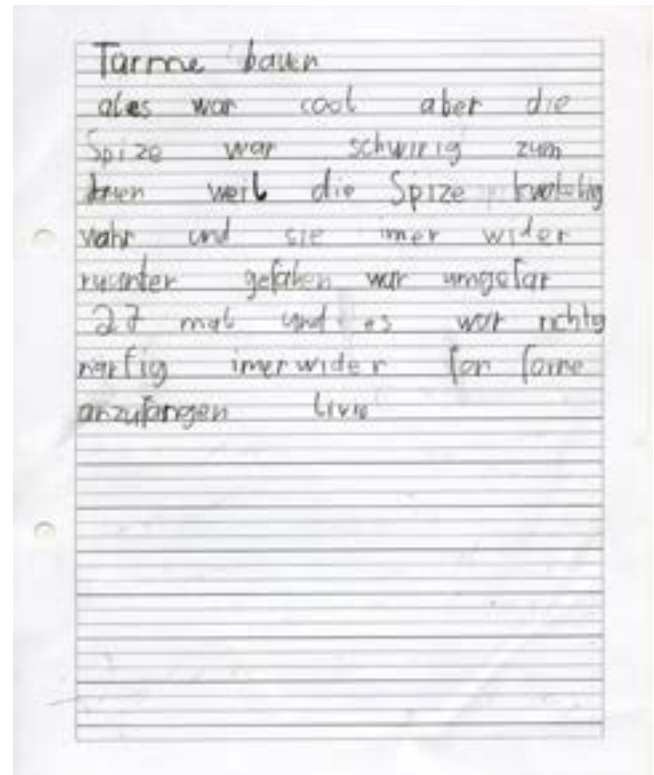 Türme bauen
ales war cool aber die
Spize war schwirig zum
bauen weil die Spize
vahr und sie imer wider
runter gefahlen war umgefar
27 mal und es war richtig
närfig imerwider fon forne
anzufangen Livio